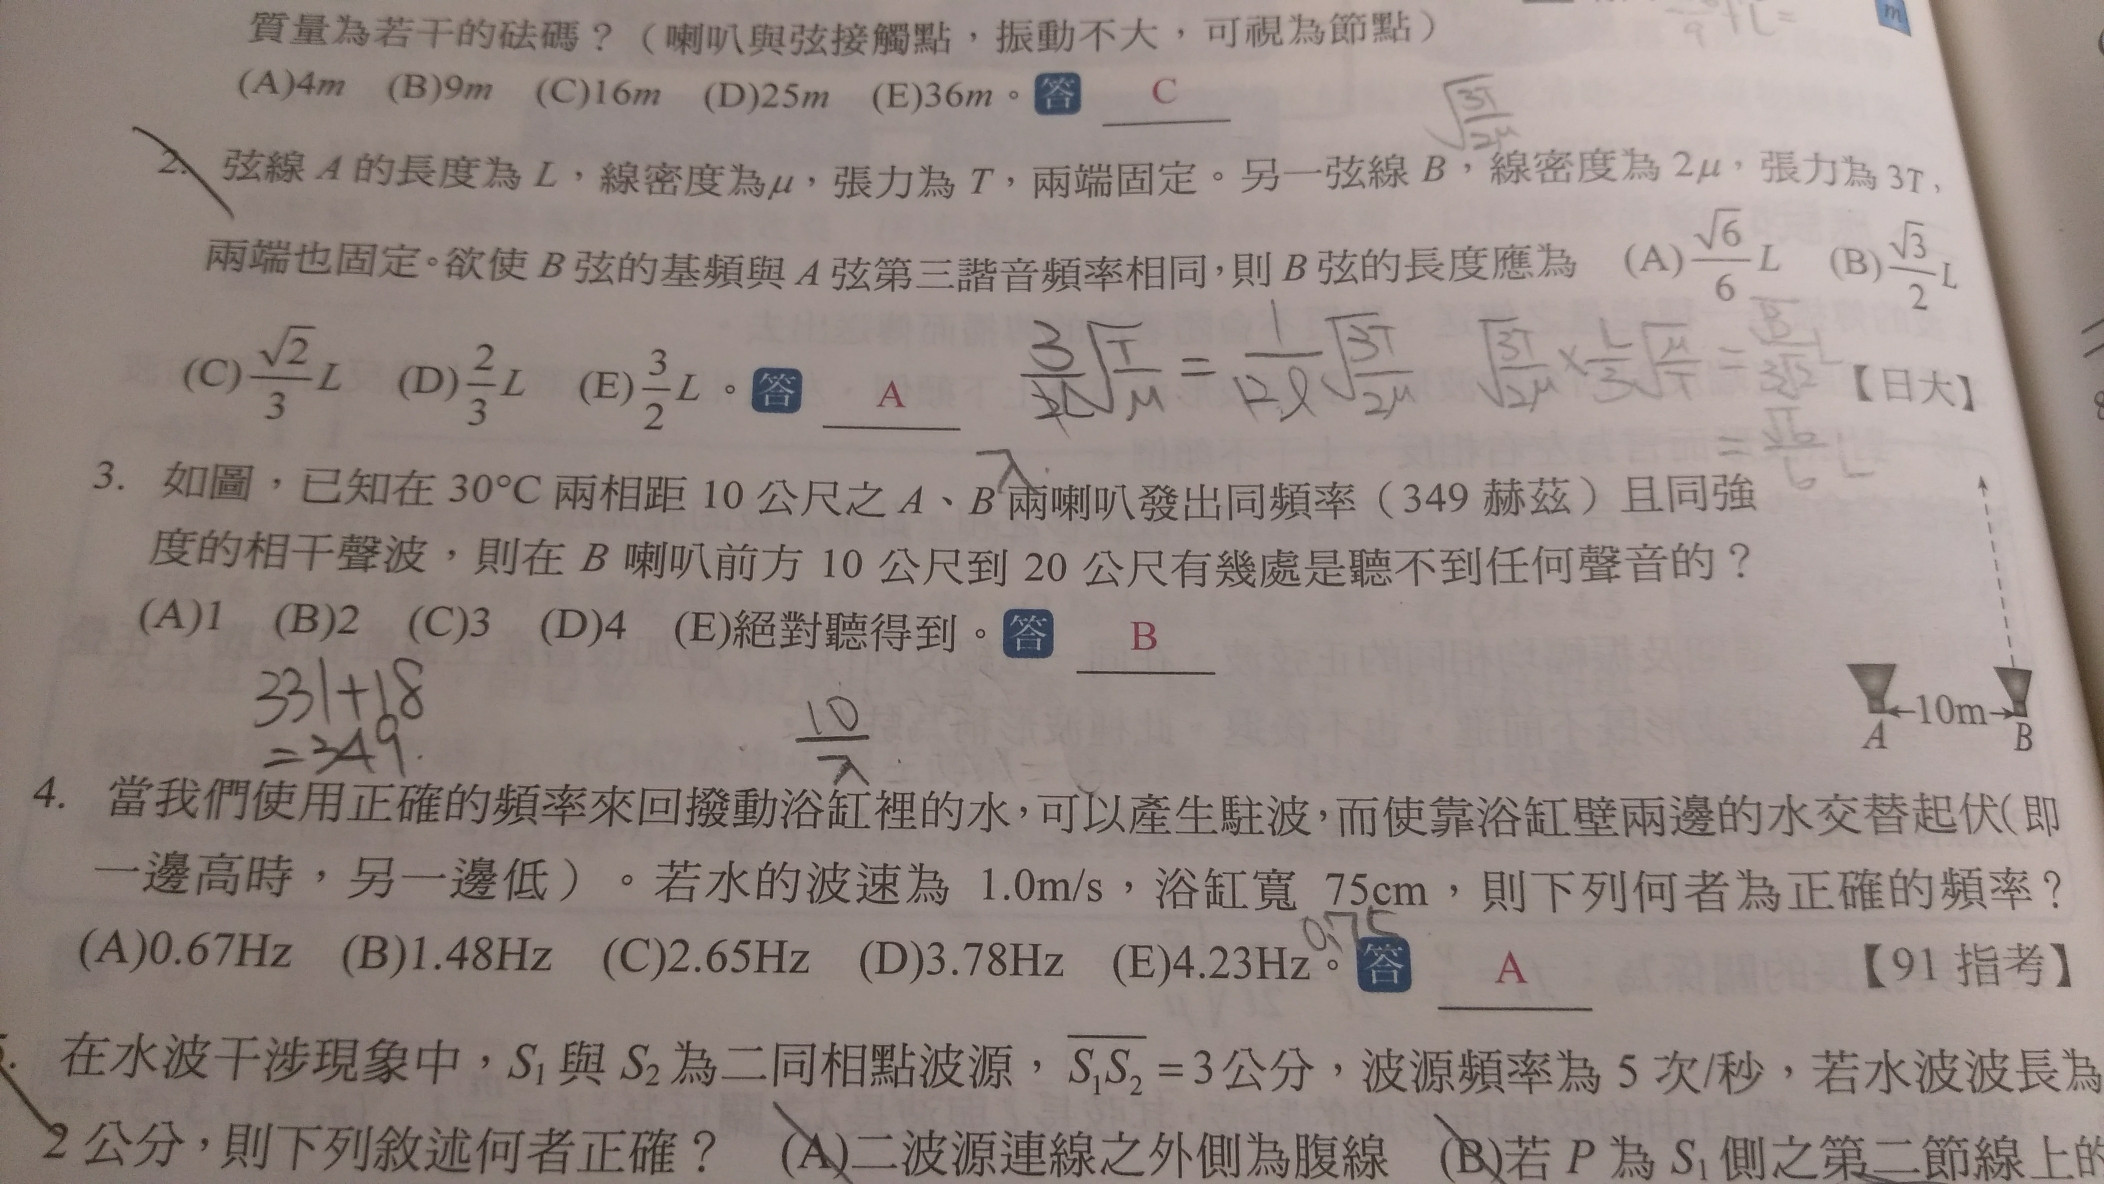 質量為若干的砝碼？（喇叭與弦接觸點，振動不大，可視為節點）
(A)4m (B)9m (C)16m (D)25m (E)36m。答 C
2. 弦線 A 的長度為 L，線密度為μ，張力為 T，兩端固定。另一弦線 B，線密度為 2μ，張力為 3T，
兩端也固定。欲使 B 弦的基頻與 A 弦第三諧音頻率相同，則 B 弦的長度應為 (A)√6/6 L (B)√3/2 L
(C)√2/3 L (D)2/3 L (E)3/2 L。答 A 【日大】
3. 如圖，已知在 30°C 兩相距 10 公尺之 A、B 兩喇叭發出同頻率（349 赫茲）且同強
度的相干聲波，則在 B 喇叭前方 10 公尺到 20 公尺有幾處是聽不到任何聲音的？
(A)1 (B)2 (C)3 (D)4 (E)絕對聽得到。答 B
331+18
=349.
10/λ
←10m→
A B
4. 當我們使用正確的頻率來回撥動浴缸裡的水，可以產生駐波，而使靠浴缸壁兩邊的水交替起伏（即
一邊高時，另一邊低）。若水的波速為 1.0m/s，浴缸寬 75cm，則下列何者為正確的頻率？
0.75
(A)0.67Hz (B)1.48Hz (C)2.65Hz (D)3.78Hz (E)4.23Hz。答 A 【91 指考】
在水波干涉現象中，S₁與 S₂為二同相點波源，S₁S₂=3公分，波源頻率為 5 次/秒，若水波波長為
2 公分，則下列敘述何者正確？ (A)二波源連線之外側為腹線 (B)若 P 為 S₁側之第二節線上的